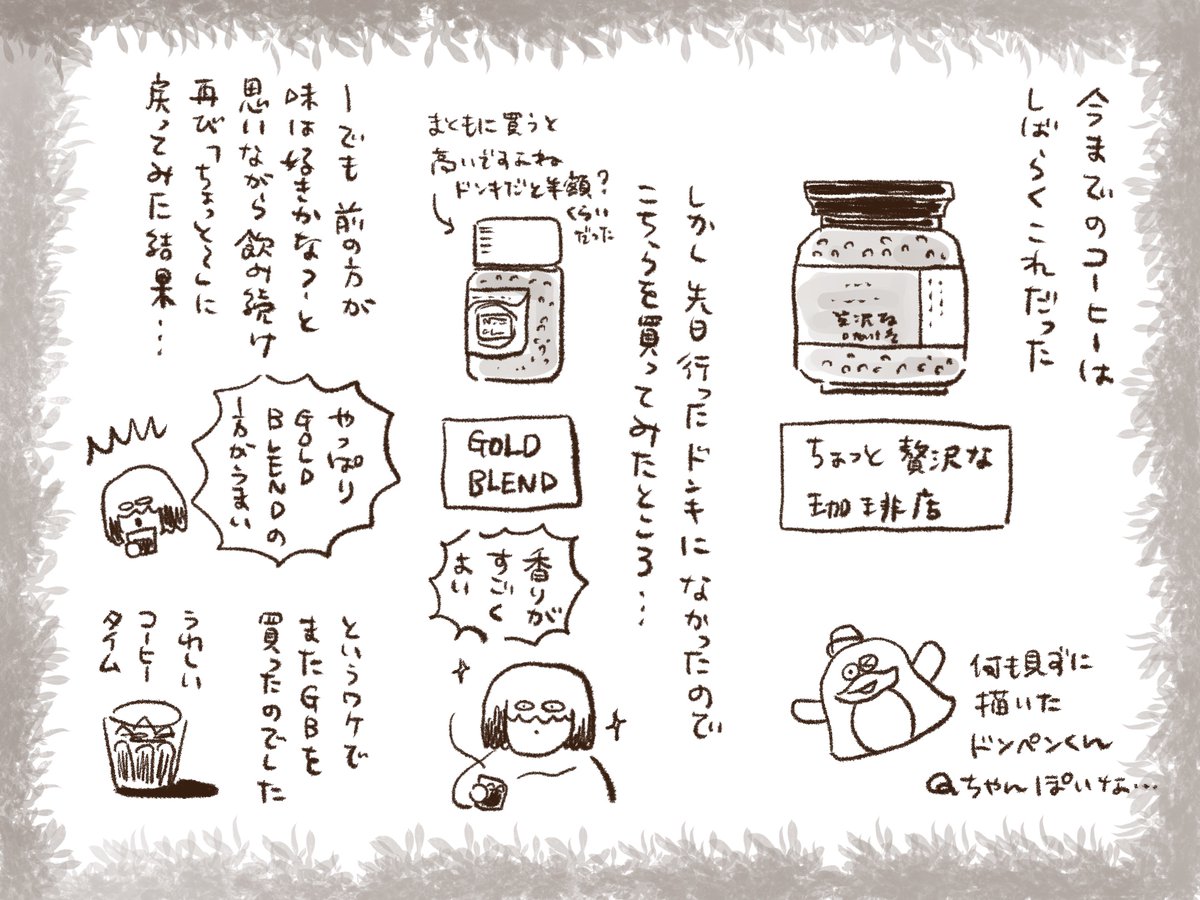 今までのコーヒーは
しばらくこれだった
贅沢な
ちょっと贅沢な
珈琲店
何も見ずに
描いた
ドンペンくん
Qちゃんぽいな…
しかし先日行ったドンキになかったので
こちらを買ってみたところ…
まともに買うと
高いですよね
ドンキだと半額?
くらい
だった
GOLD
BLEND
香りが
すごく
よい
ーでも前の方が
味は好きかなつーと
思いながら飲み続け
再び「ちょっと〜」に
戻ってみた結果…
やっぱり
GOLD
BLENDの
方がうまい
というワケで
またGBを
買ったのでした
うれしい
コーヒー
タイム